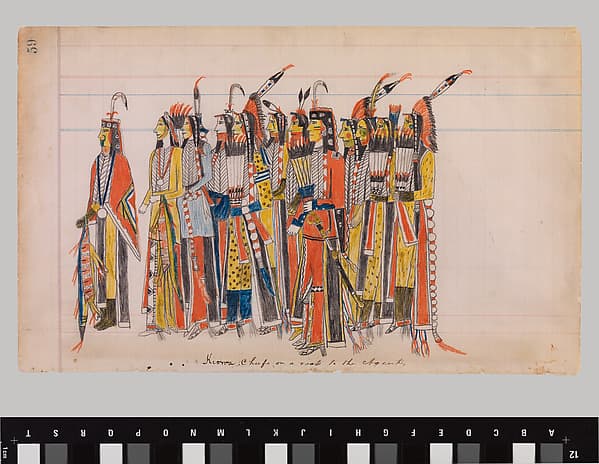 59
Kiowa Chiefs on a visit to the Agent.
T S R Q P O N M L K J I H G F E D C B A
1cm 12